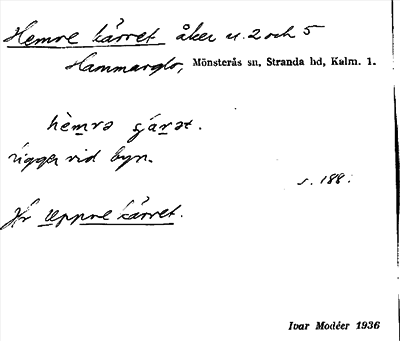 Hemre kärret åker u. 2 och 5
Hammarglo, Mönsterås sn, Stranda hd, Kalm. l.
hèmrə çárət.
ligger vid byn.
s. 188.
Jfr Uppre kärret.
Ivar Modéer 1936